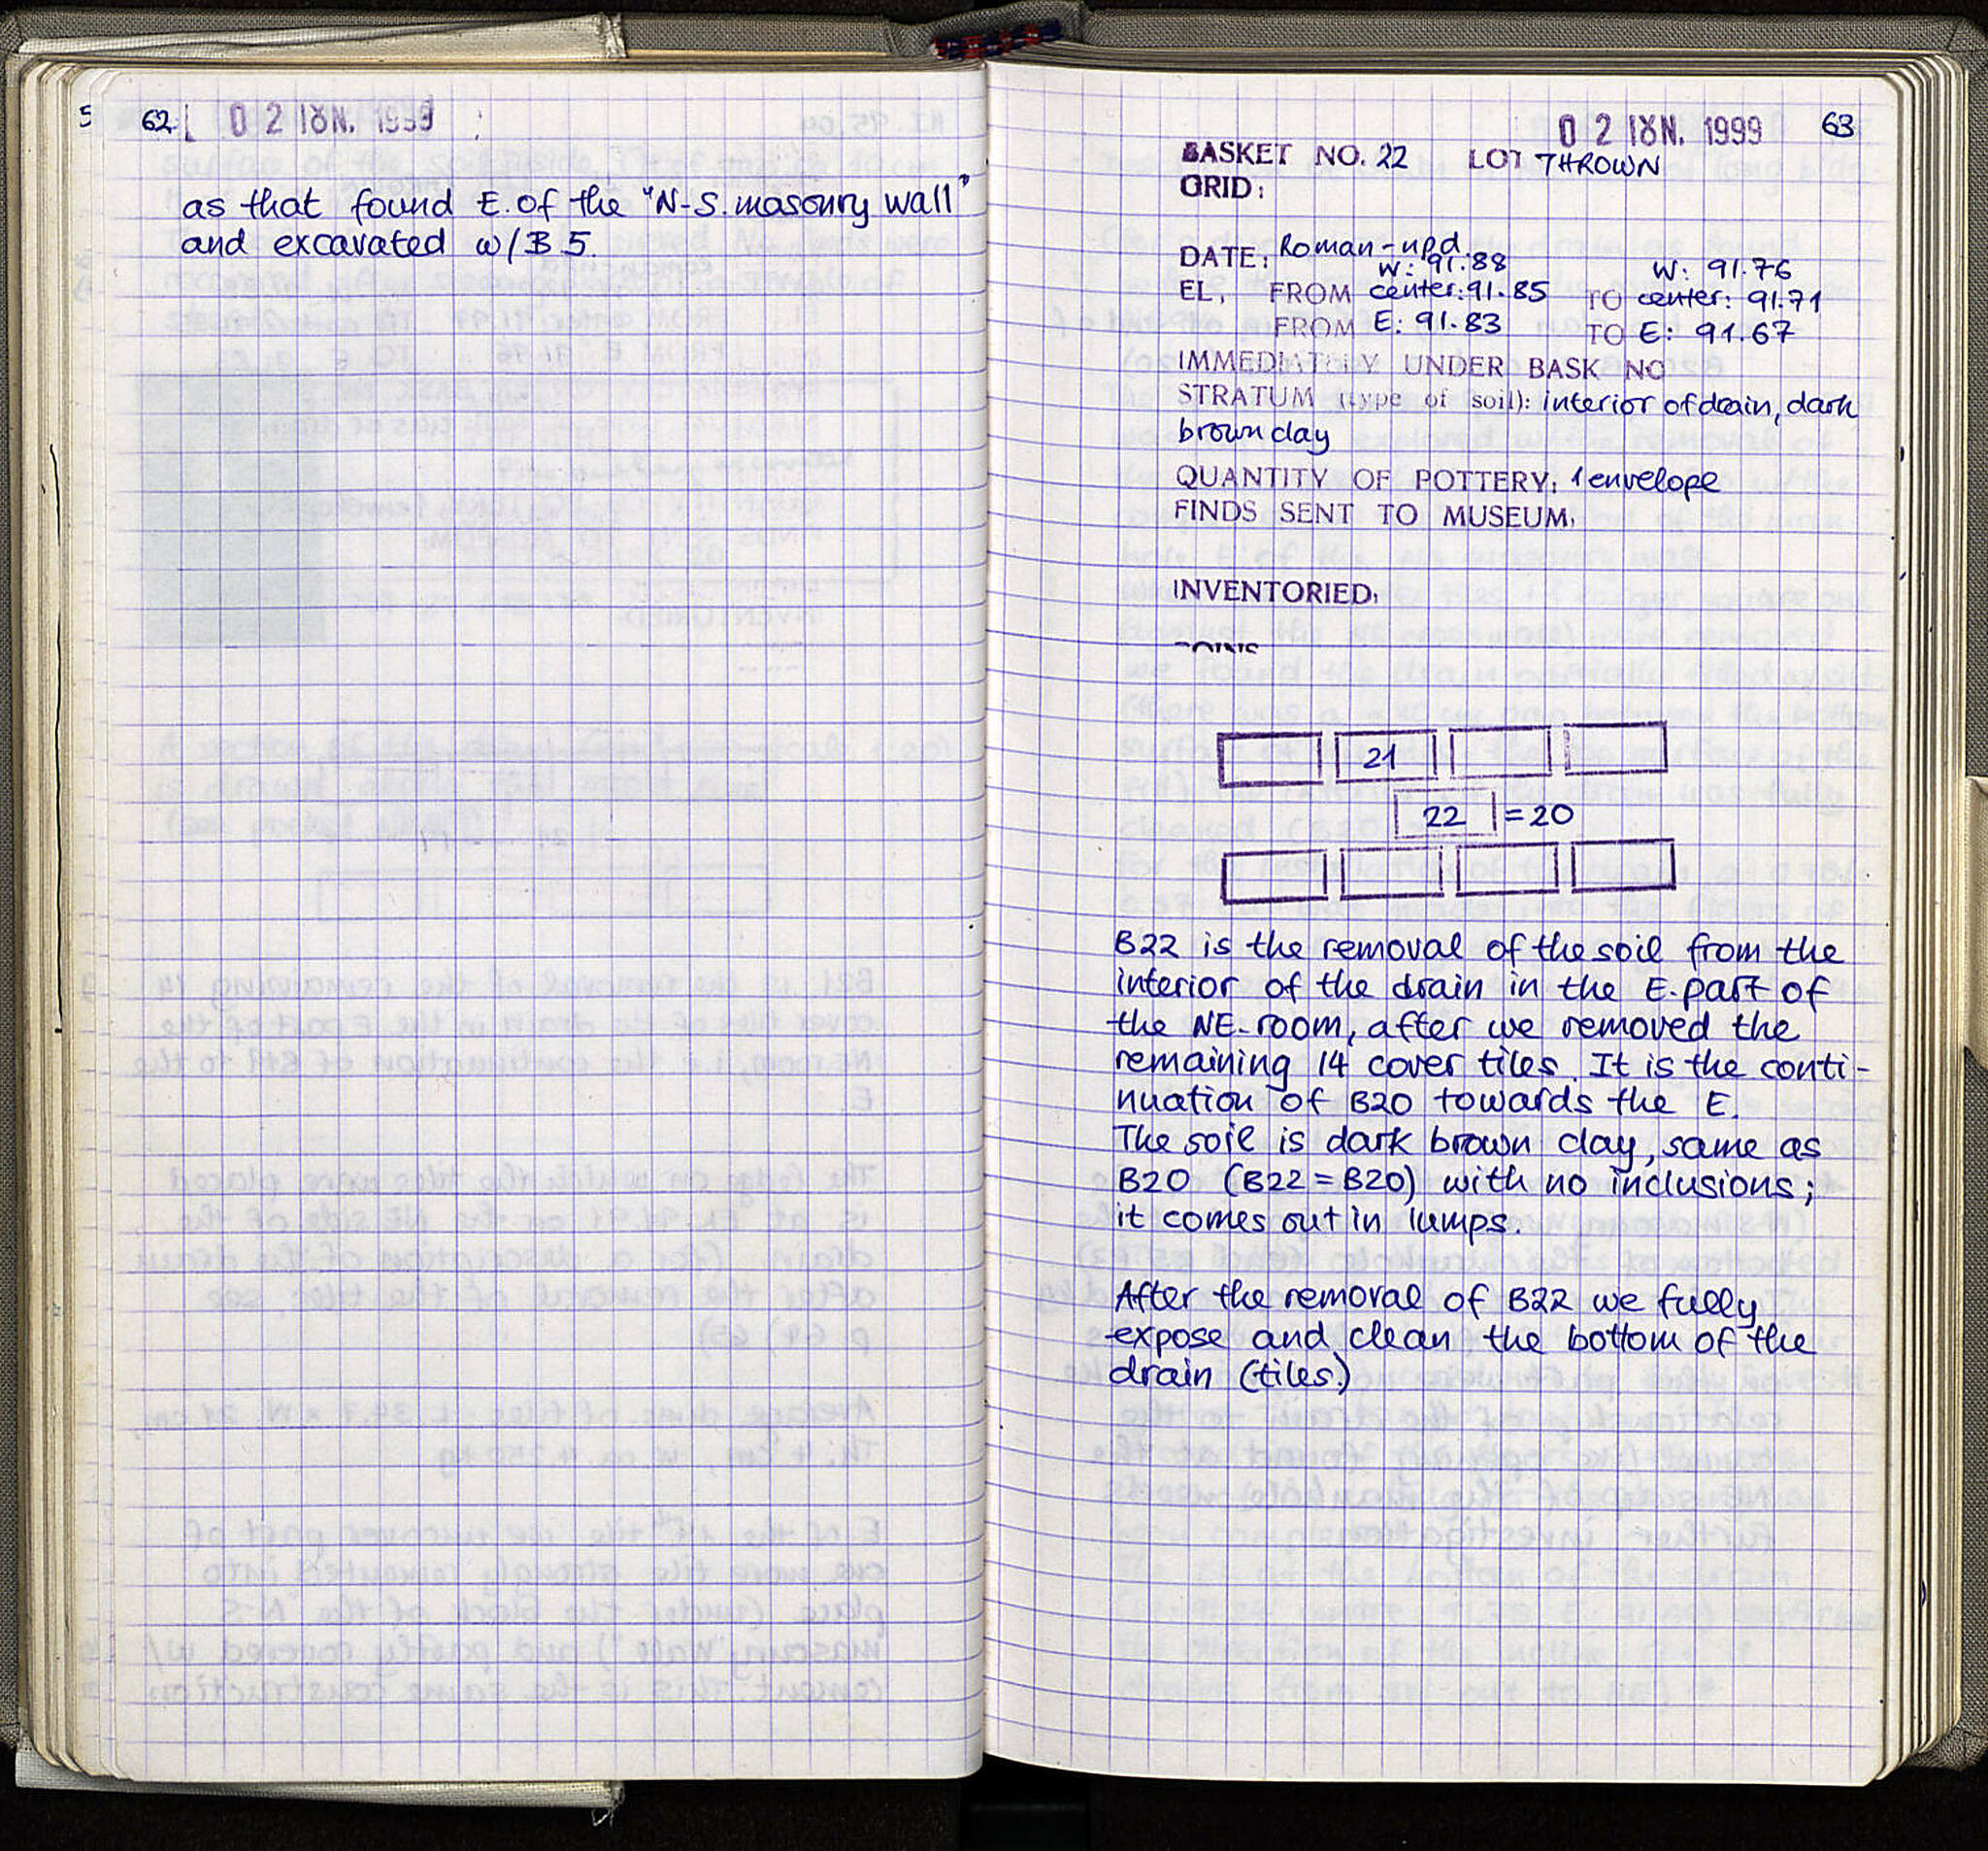 5
62 0 2 ΙΟΥΝ. 1999
as that found E. of the "N-S. masonry wall"
and excavated w/B5.
0 2 ΙΟΥΝ. 1999 63
BASKET NO. 22 LOT THROWN
GRID:
DATE: Roman-npd.
W: 91.88 W: 91.76
EL, FROM center: 91.85 TO center: 91.71
FROM E: 91.83 TO E: 91.67
IMMEDIATELY UNDER BASK NO
STRATUM (type of soil): interior of drain, dark
brown clay
QUANTITY OF POTTERY: 1 envelope
FINDS SENT TO MUSEUM:
INVENTORIED:
21
22 = 20
B22 is the removal of the soil from the
interior of the drain in the E. part of
the NE-room, after we removed the
remaining 14 cover tiles. It is the conti-
nuation of B20 towards the E.
The soil is dark brown clay, same as
B20 (B22=B20) with no inclusions;
it comes out in lumps.
After the removal of B22 we fully
expose and clean the bottom of the
drain (tiles.)